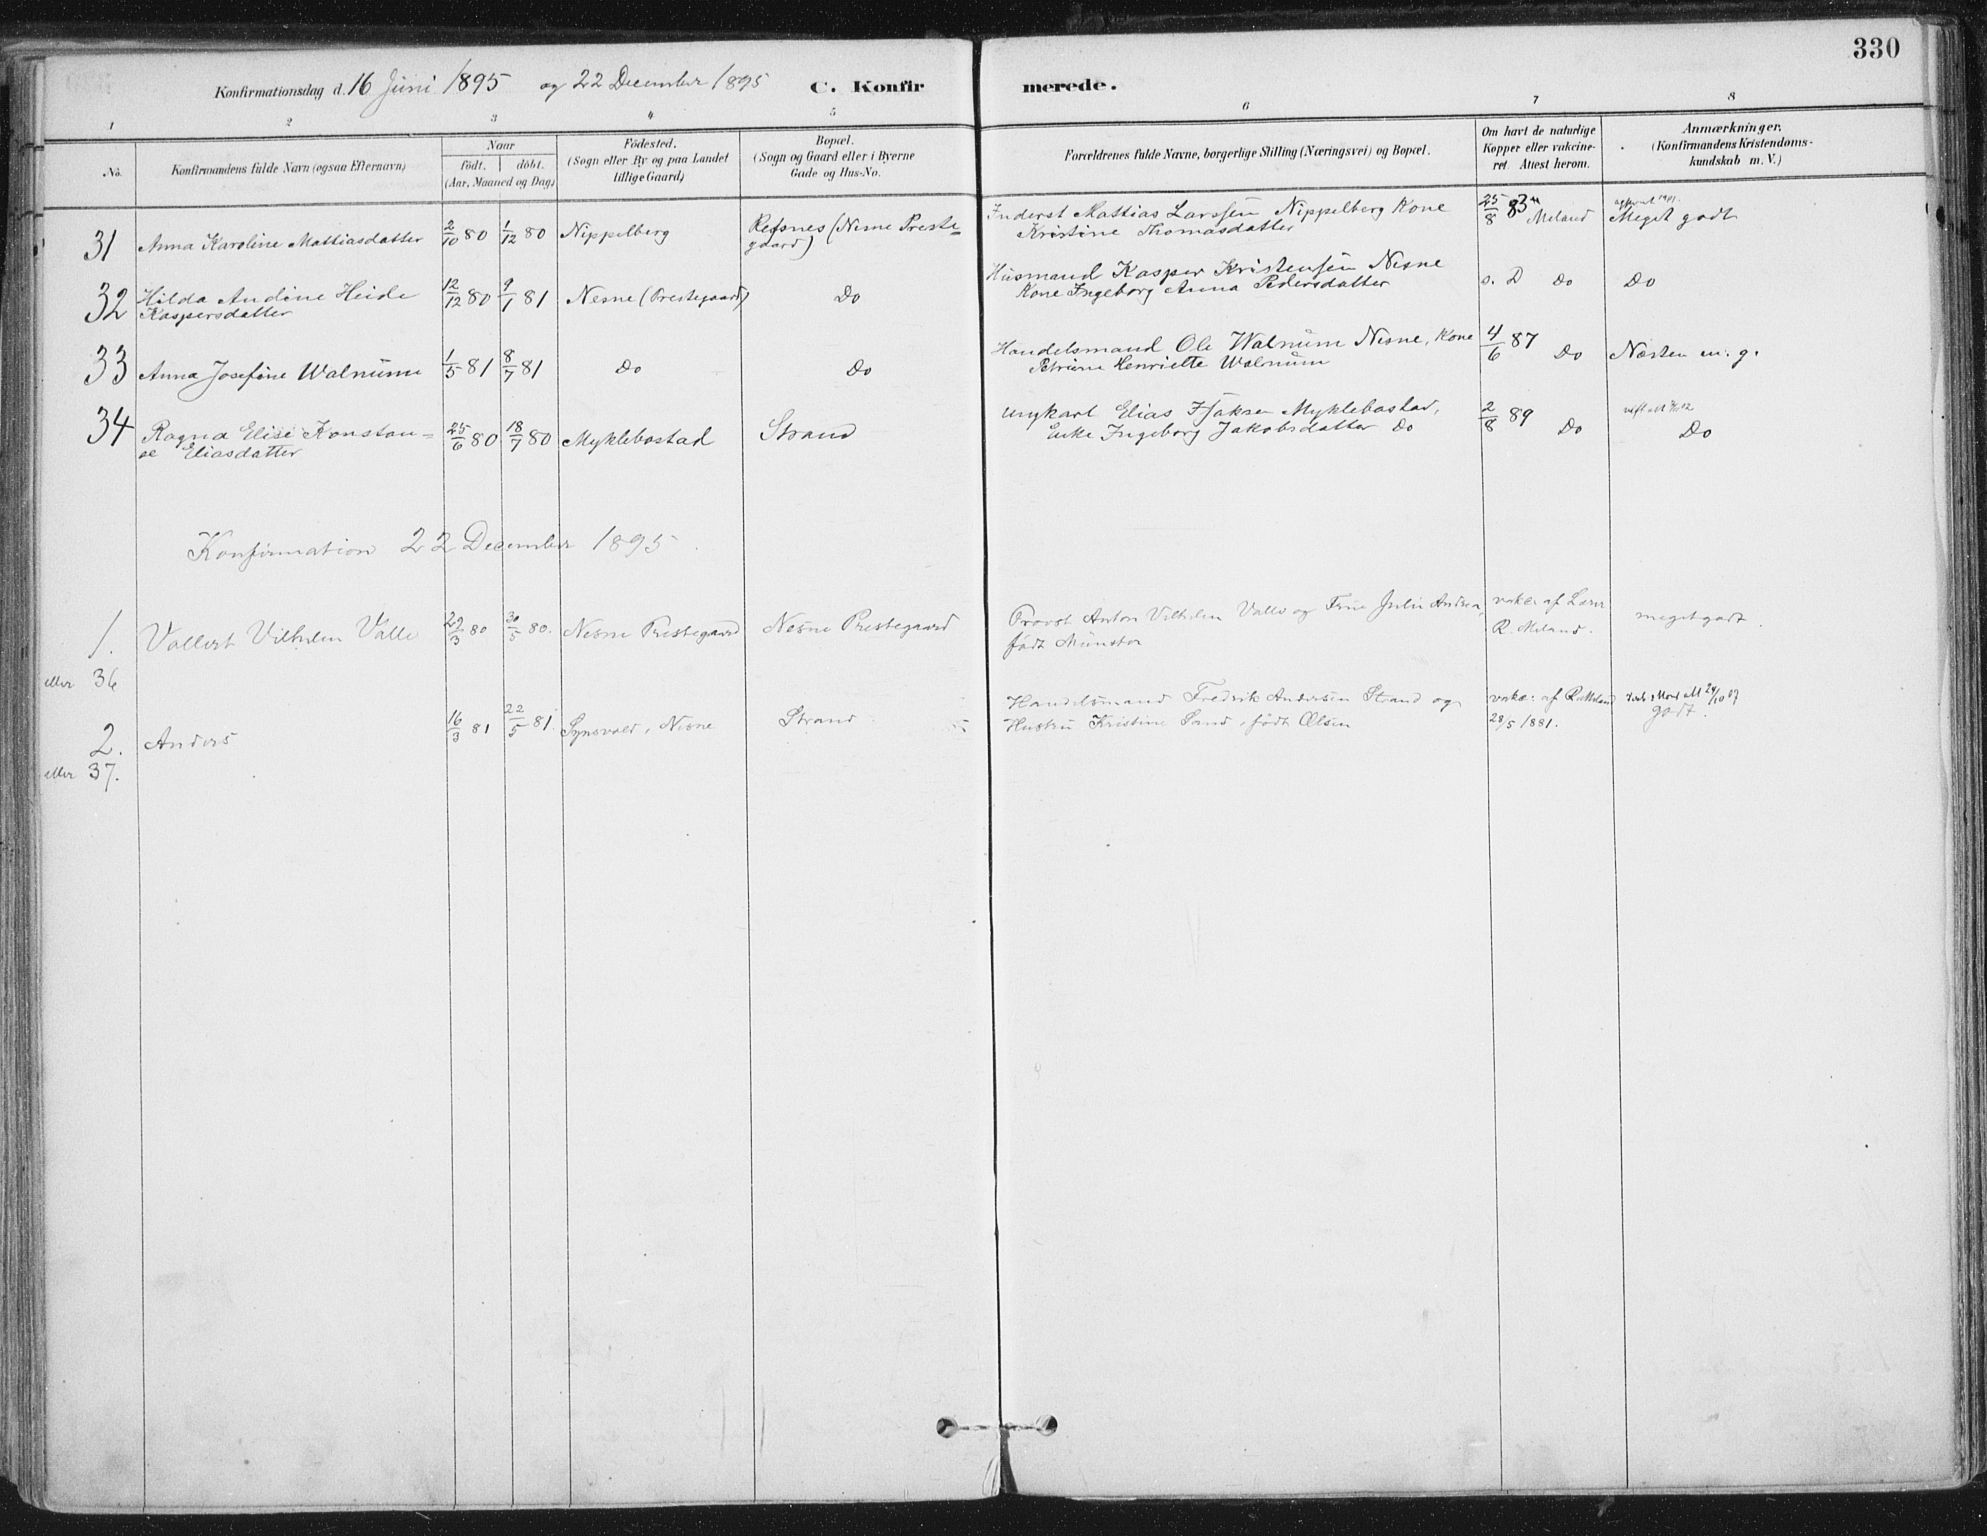 330
Konfirmationsdag d. 16 Juni 1895 og 22 December 1895 C. Konfirmerede.
1 2 3 4 5 6 7 8
No. Konfirmandens fulde Navn (ogsaa Efternavn) Naar født. døbt. (Aar, Maaned og Dag) Födested. (Sogn eller By og paa Landet tillige Gaard) Bopæl. (Sogn og Gaard eller i Byerne Gade og Hus-No. Forældrenes fulde Navne, borgerlige Stilling (Næringsvei) og Bopæl. Om havt de naturlige Kopper eller vakcineret. Attest herom. Anmærkninger. (Konfirmandens Kristendomskundskab m. V.)
31 Anna Karoline Mattiasdatter 2/10 80 1/12 80 Nippelberg Refsnes (Nesne Prestegaard) Inderst Mattias Larssen Nippelberg Kone Kristine Thomasdatter 25/8 83 Meland Meget godt
32 Hilda Andine Heide Kaspersdatter 12/12 80 9/1 81 Nesne (Prestegaard) Do Husmand Kasper Kristensen Nesne Kone Ingeborg Anna Pedersdatter s. D Do Do
33 Anna Josefine Walnum 1/5 81 8/7 81 Do Do Handelsmand Ole Walnum Nesne, Kone Petrine Henriette Walnum 4/6 87 Do Næsten m. g.
34 Ragna Elise Konstanse Eliasdatter 25/6 80 18/7 80 Myklebostad Strand Ungkarl Elias Isaksen Myklebostad, Enke Ingeborg Jakobsdatter Do 2/8 89 Do Do
Konfirmation 22 December 1895.
1. eller 36 Vallert Vilhelm Valle 29/3 80 30/5 80. Nesne Prestegaard Nesne Prestegaard Provst Anton Vilhelm Valle og Frue Julie Andrea, født Münster vakc: af Lærer R. Meland. meget godt.
2. eller 37. Anders 16/3 81 22/5 81. Nesne Strand Handelsmand Fredrik Andersen Strand og Hustru Kristine Sand, født Olsen vakc: af R. Meland 28/5 1881. godt.